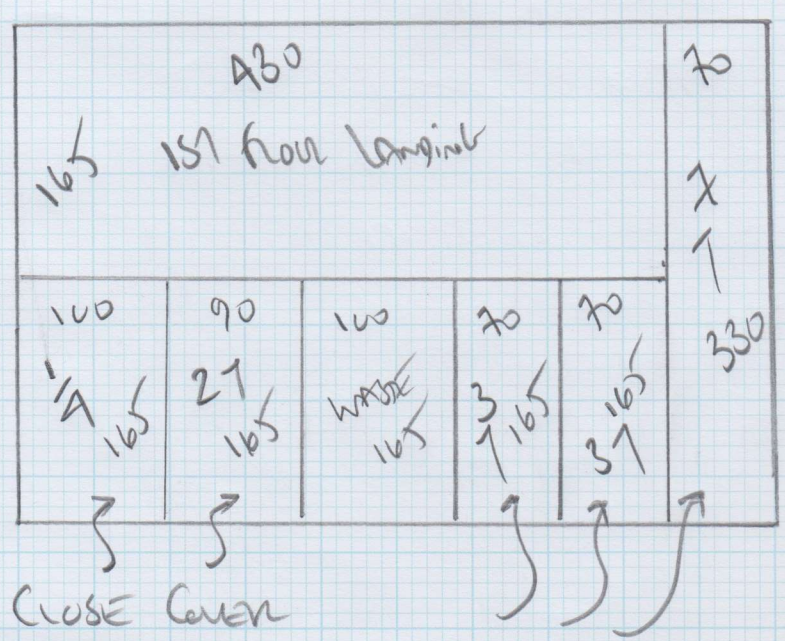 430
165
1ST FLOOR LANDING
70
7
T
330
100
1/4
165
90
2T
165
100
WASTE
165
70
3
T 165
70
165
3T
CLOSE COVER